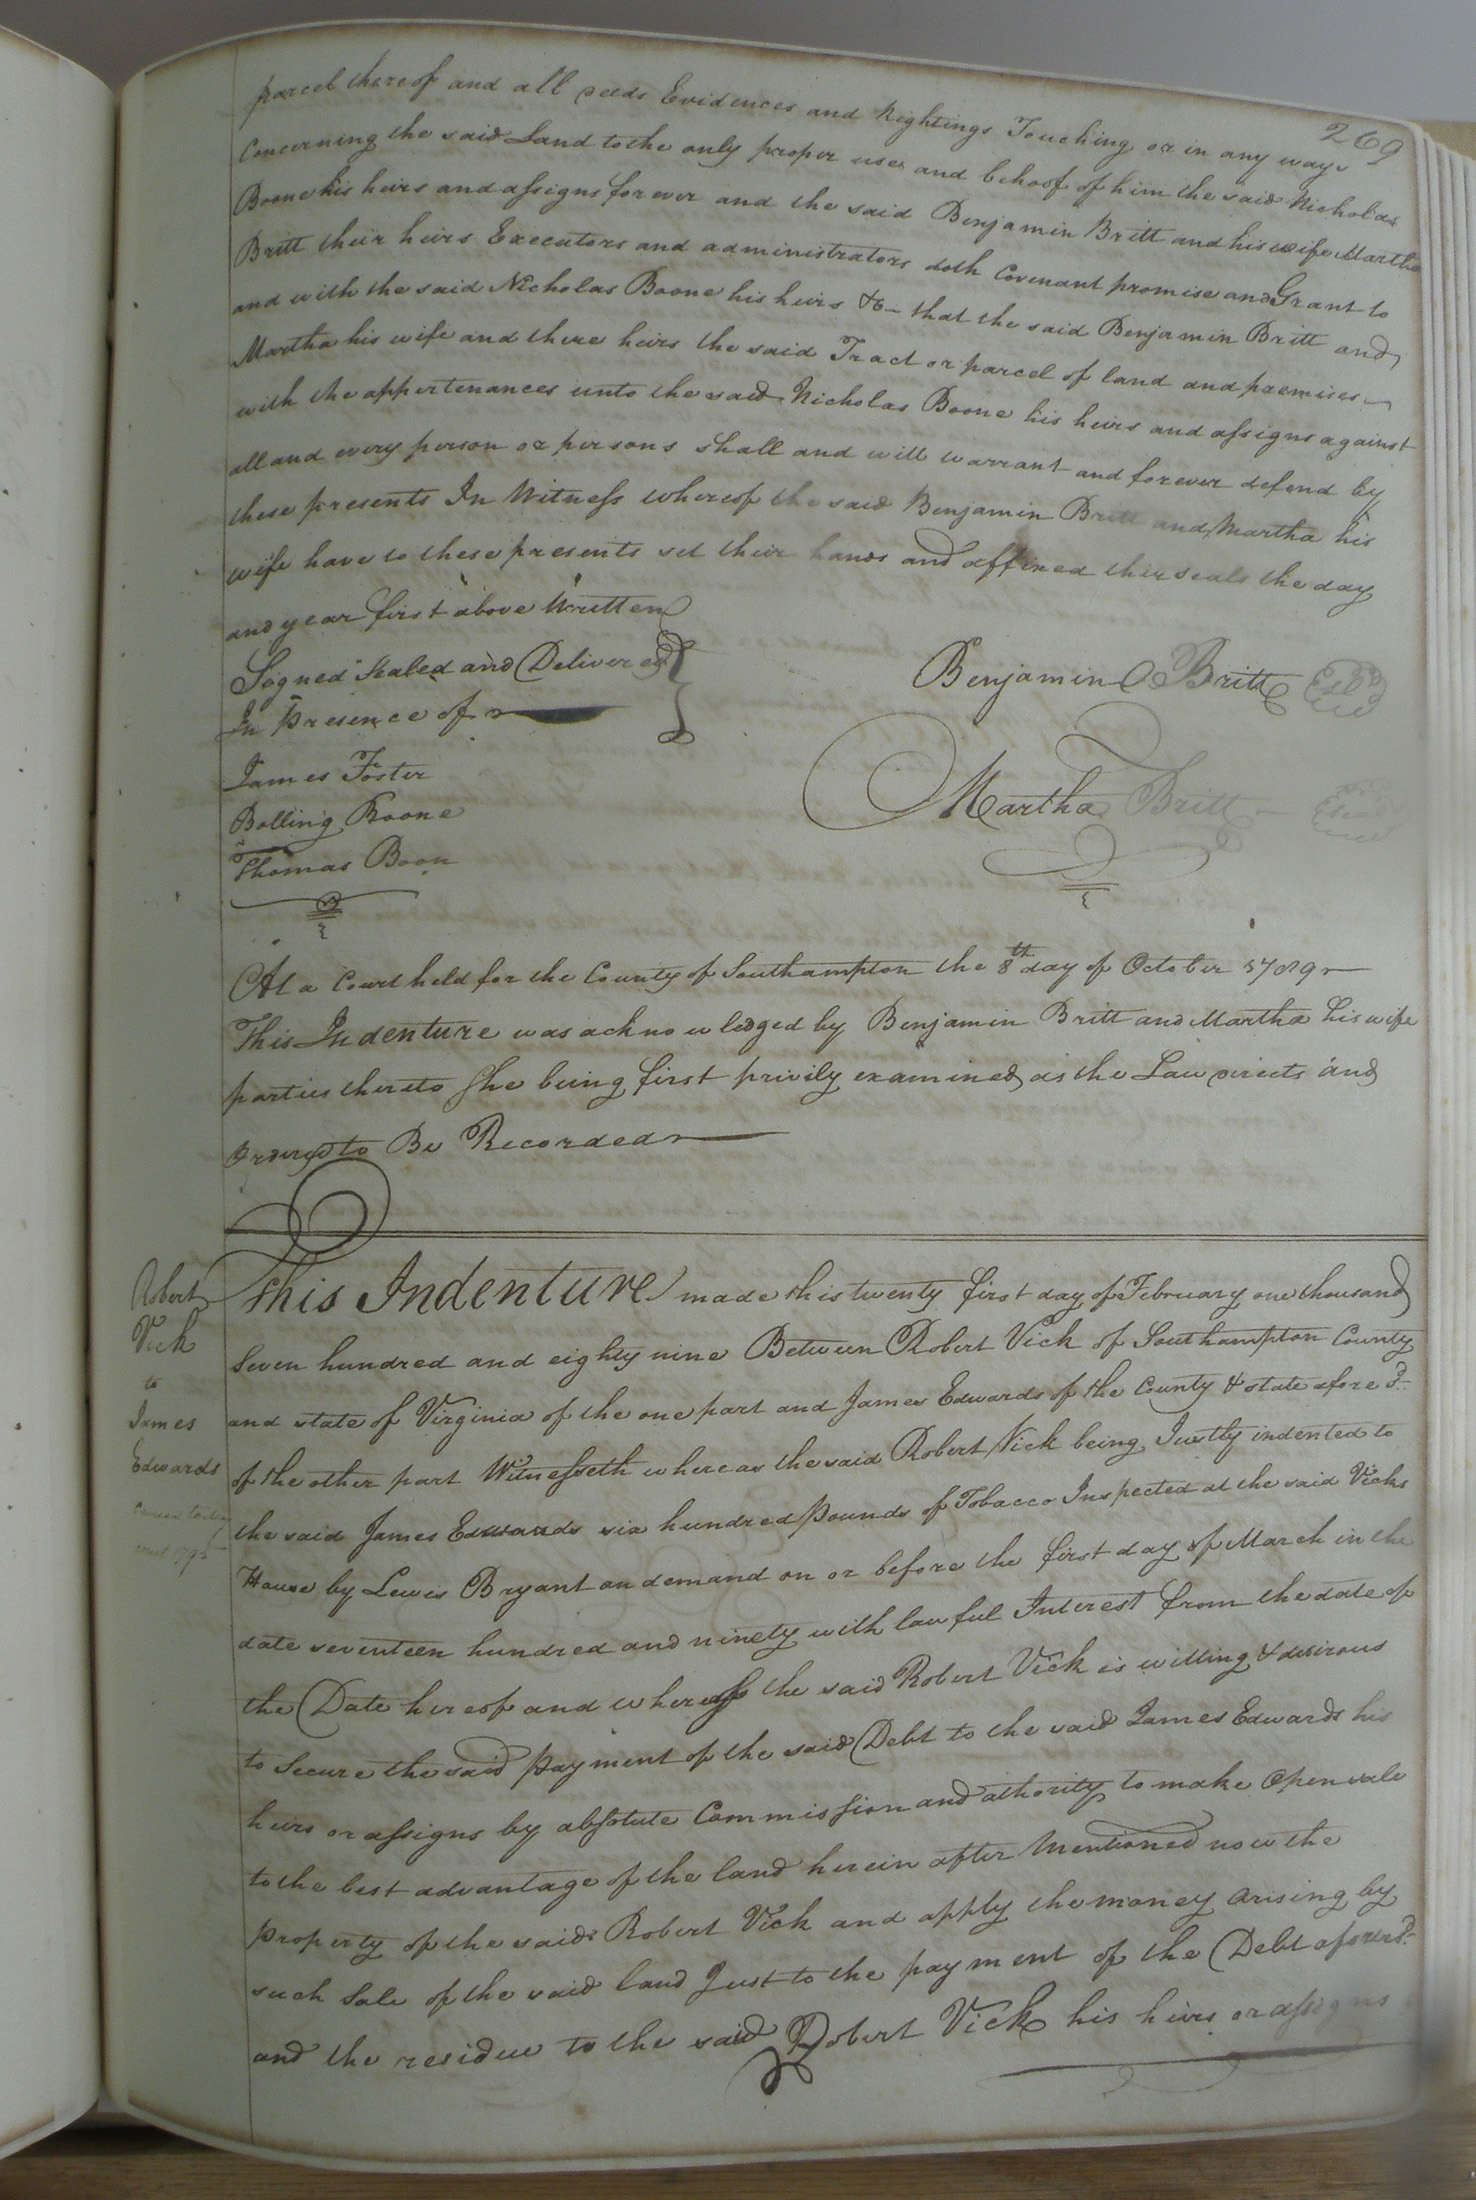 269
parcel thereof and all deeds Evidences and Rightings Touching or in any ways
Concerning the said Land to the only proper use and behoof of him the said Nicholas
Boone his heirs and assigns forever and the said Benjamin Britt and his wife Martha
Britt their heirs Executors and administrators doth Covenant promise and Grant to
and with the said Nicholas Boone his heirs &c that the said Benjamin Britt and
Martha his wife and there heirs the said Tract or parcel of land and premises
with the appertenances unto the said Nicholas Boone his heirs and assigns against
all and every person or persons shall and will warrant and forever defend by
these presents In Witness whereof the said Benjamin Britt and Martha his
wife have to these presents set their hands and affixed their seals the day
and year first above Written
Signed Sealed and Delivered
In Presence of
Benjamin Britt
Martha Britt Seal
James Foster
Bolling Boone
Thomas Boon
At a Court held for the County of Southampton the 8th day of October 1789
This Indenture was acknowledged by Benjamin Britt and Martha his wife
parties thereto She being first privily examined as the Law directs and
Ordered to Be Recorded
Robert
Vick
to
James
Edwards
This Indenture made this twenty first day of February one thousand
Seven hundred and eighty nine Between Robert Vick of Southampton County
and state of Virginia of the one part and James Edwards of the County & state afore sd
of the other part Witnesseth whereas the said Robert Vick being Justly indented to
the said James Edwards six hundred Pounds of Tobacco Inspected at the said Vicks
House by Lewis Bryant on demand on or before the first day of March in the
date seventeen hundred and ninety with lawful Interest from the date of
the Date hereof and whereas the said Robert Vick is willing & desirous
to Secure the said Payment of the said Debt to the said James Edwards his
heirs or assigns by absolute Commission and athority to make Open sale
to the best advantage of the land herein after Mentioned now the
Property of the said Robert Vick and apply the money arising by
such Sale of the said land Just to the payment of the Debt aforesd
and the residue to the said Robert Vick his heirs or assigns